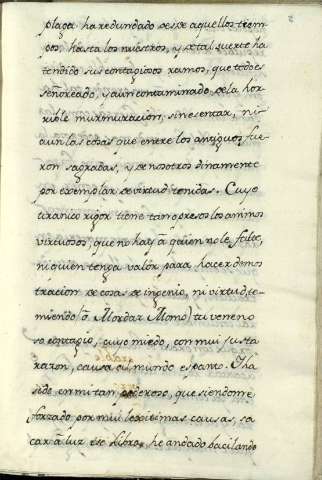 2
plaga ha redundado desde aquellos tiem
pos, hasta los nuestros, y de tal suerte ha
tendido sus contagiosos ramos, que todo es
señoreado, y aun contaminado de la hor
rible murmuracion, sin esentar, ni
aun las cosas que entre los antiguos fue
ron sagradas, y de nosotros dinamente
por exemplar de virtud tenidas. Cuyo
tiranico rigor tiene tan opresos los animos
virtuosos, que no hay a quien no le falte,
ni quien tenga valor para hacer demos
tracion de cosas de ingenio, ni virtud, te-
miendo (o Mordaz Momo) tu veneno
so contagio, cuyo miedo, con mui justa
razon, causa al mundo espanto. I ha
sido en mi tan poderoso, que siendome
forzado por mui legitimas causas, sa
car à luz este libro, he andado bacilando